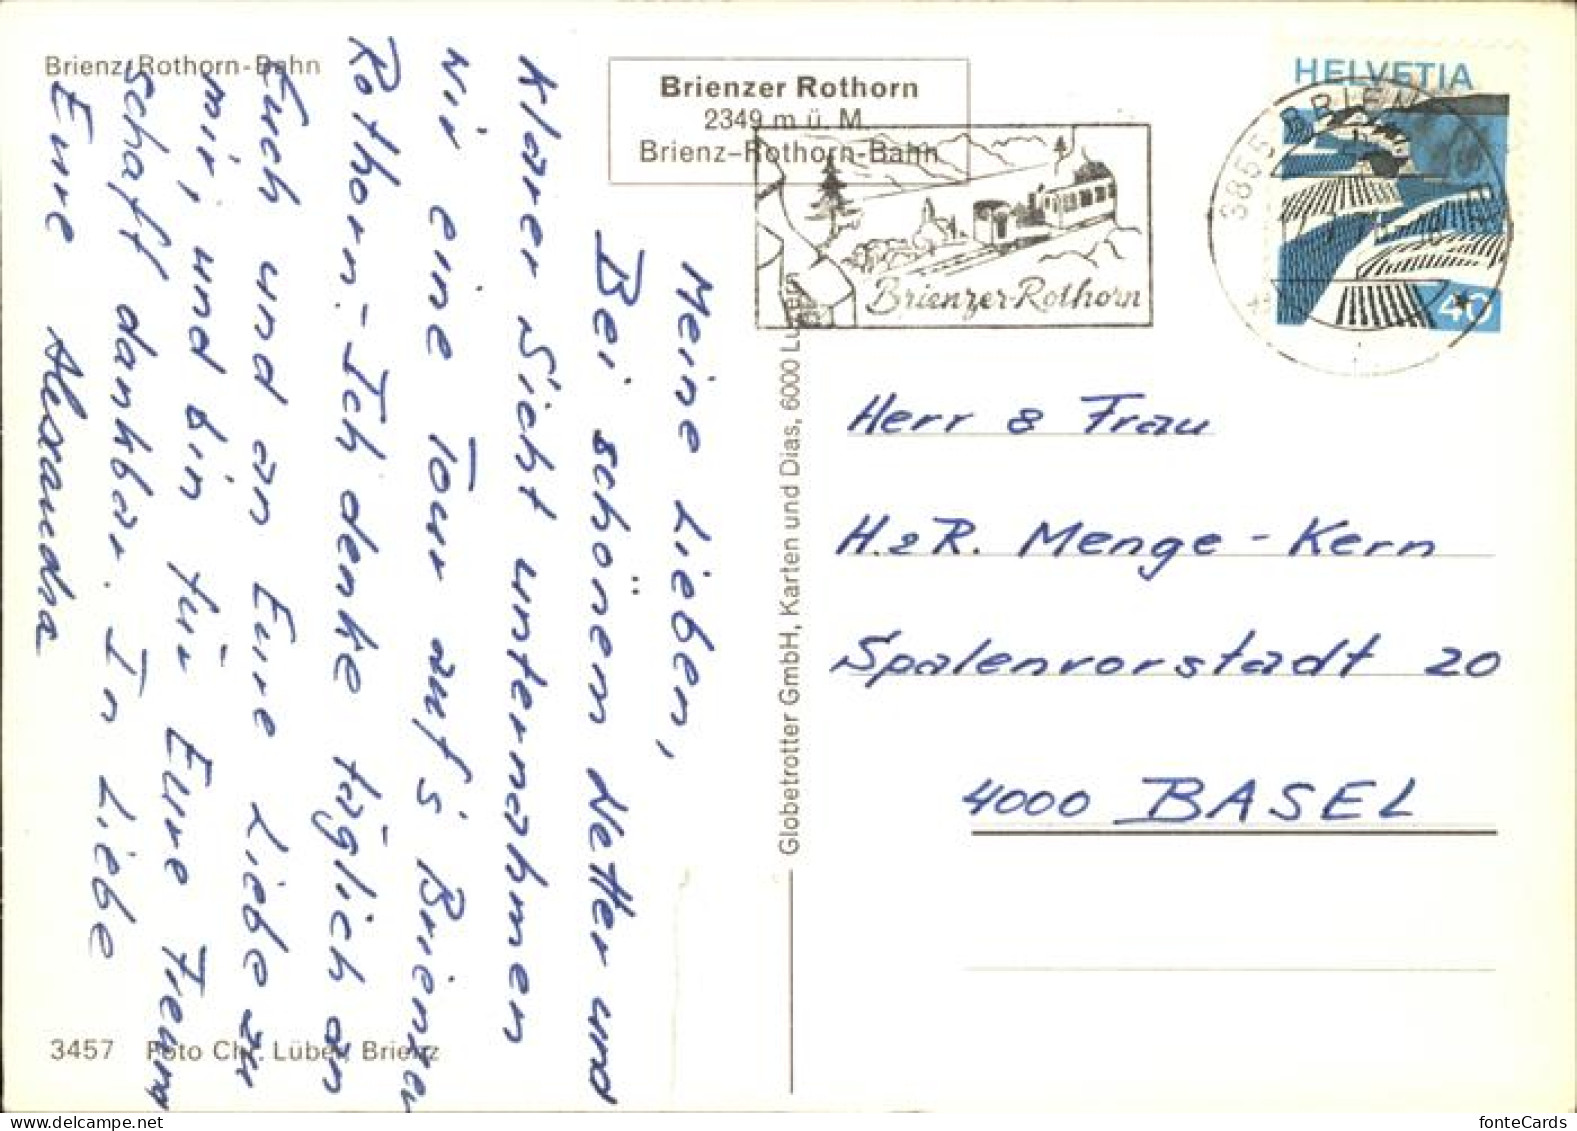 Brienz-Rothorn-Bahn
Brienzer Rothorn
2349 m ü. M.
Brienz-Rothorn-Bahn
HELVETIA
40
3855 BRIENZ
Brienzer-Rothorn
Meine Lieben,
Bei schönem Wetter und
klarer Sicht unternahmen
wir eine Tour auf's Brienzer
Rothorn.- Ich denke täglich an
Euch und an Eure Liebe zu
mir, und bin für Eure Freund
schaft dankbar. In Liebe
Eure Alexandra
Globetrotter GmbH, Karten und Dias, 6000 Luzern
Herr & Frau
H.&R. Menge-Kern
Spalenvorstadt 20
4000 BASEL
3457 Foto Chr. Lüber Brienz
fonteCards